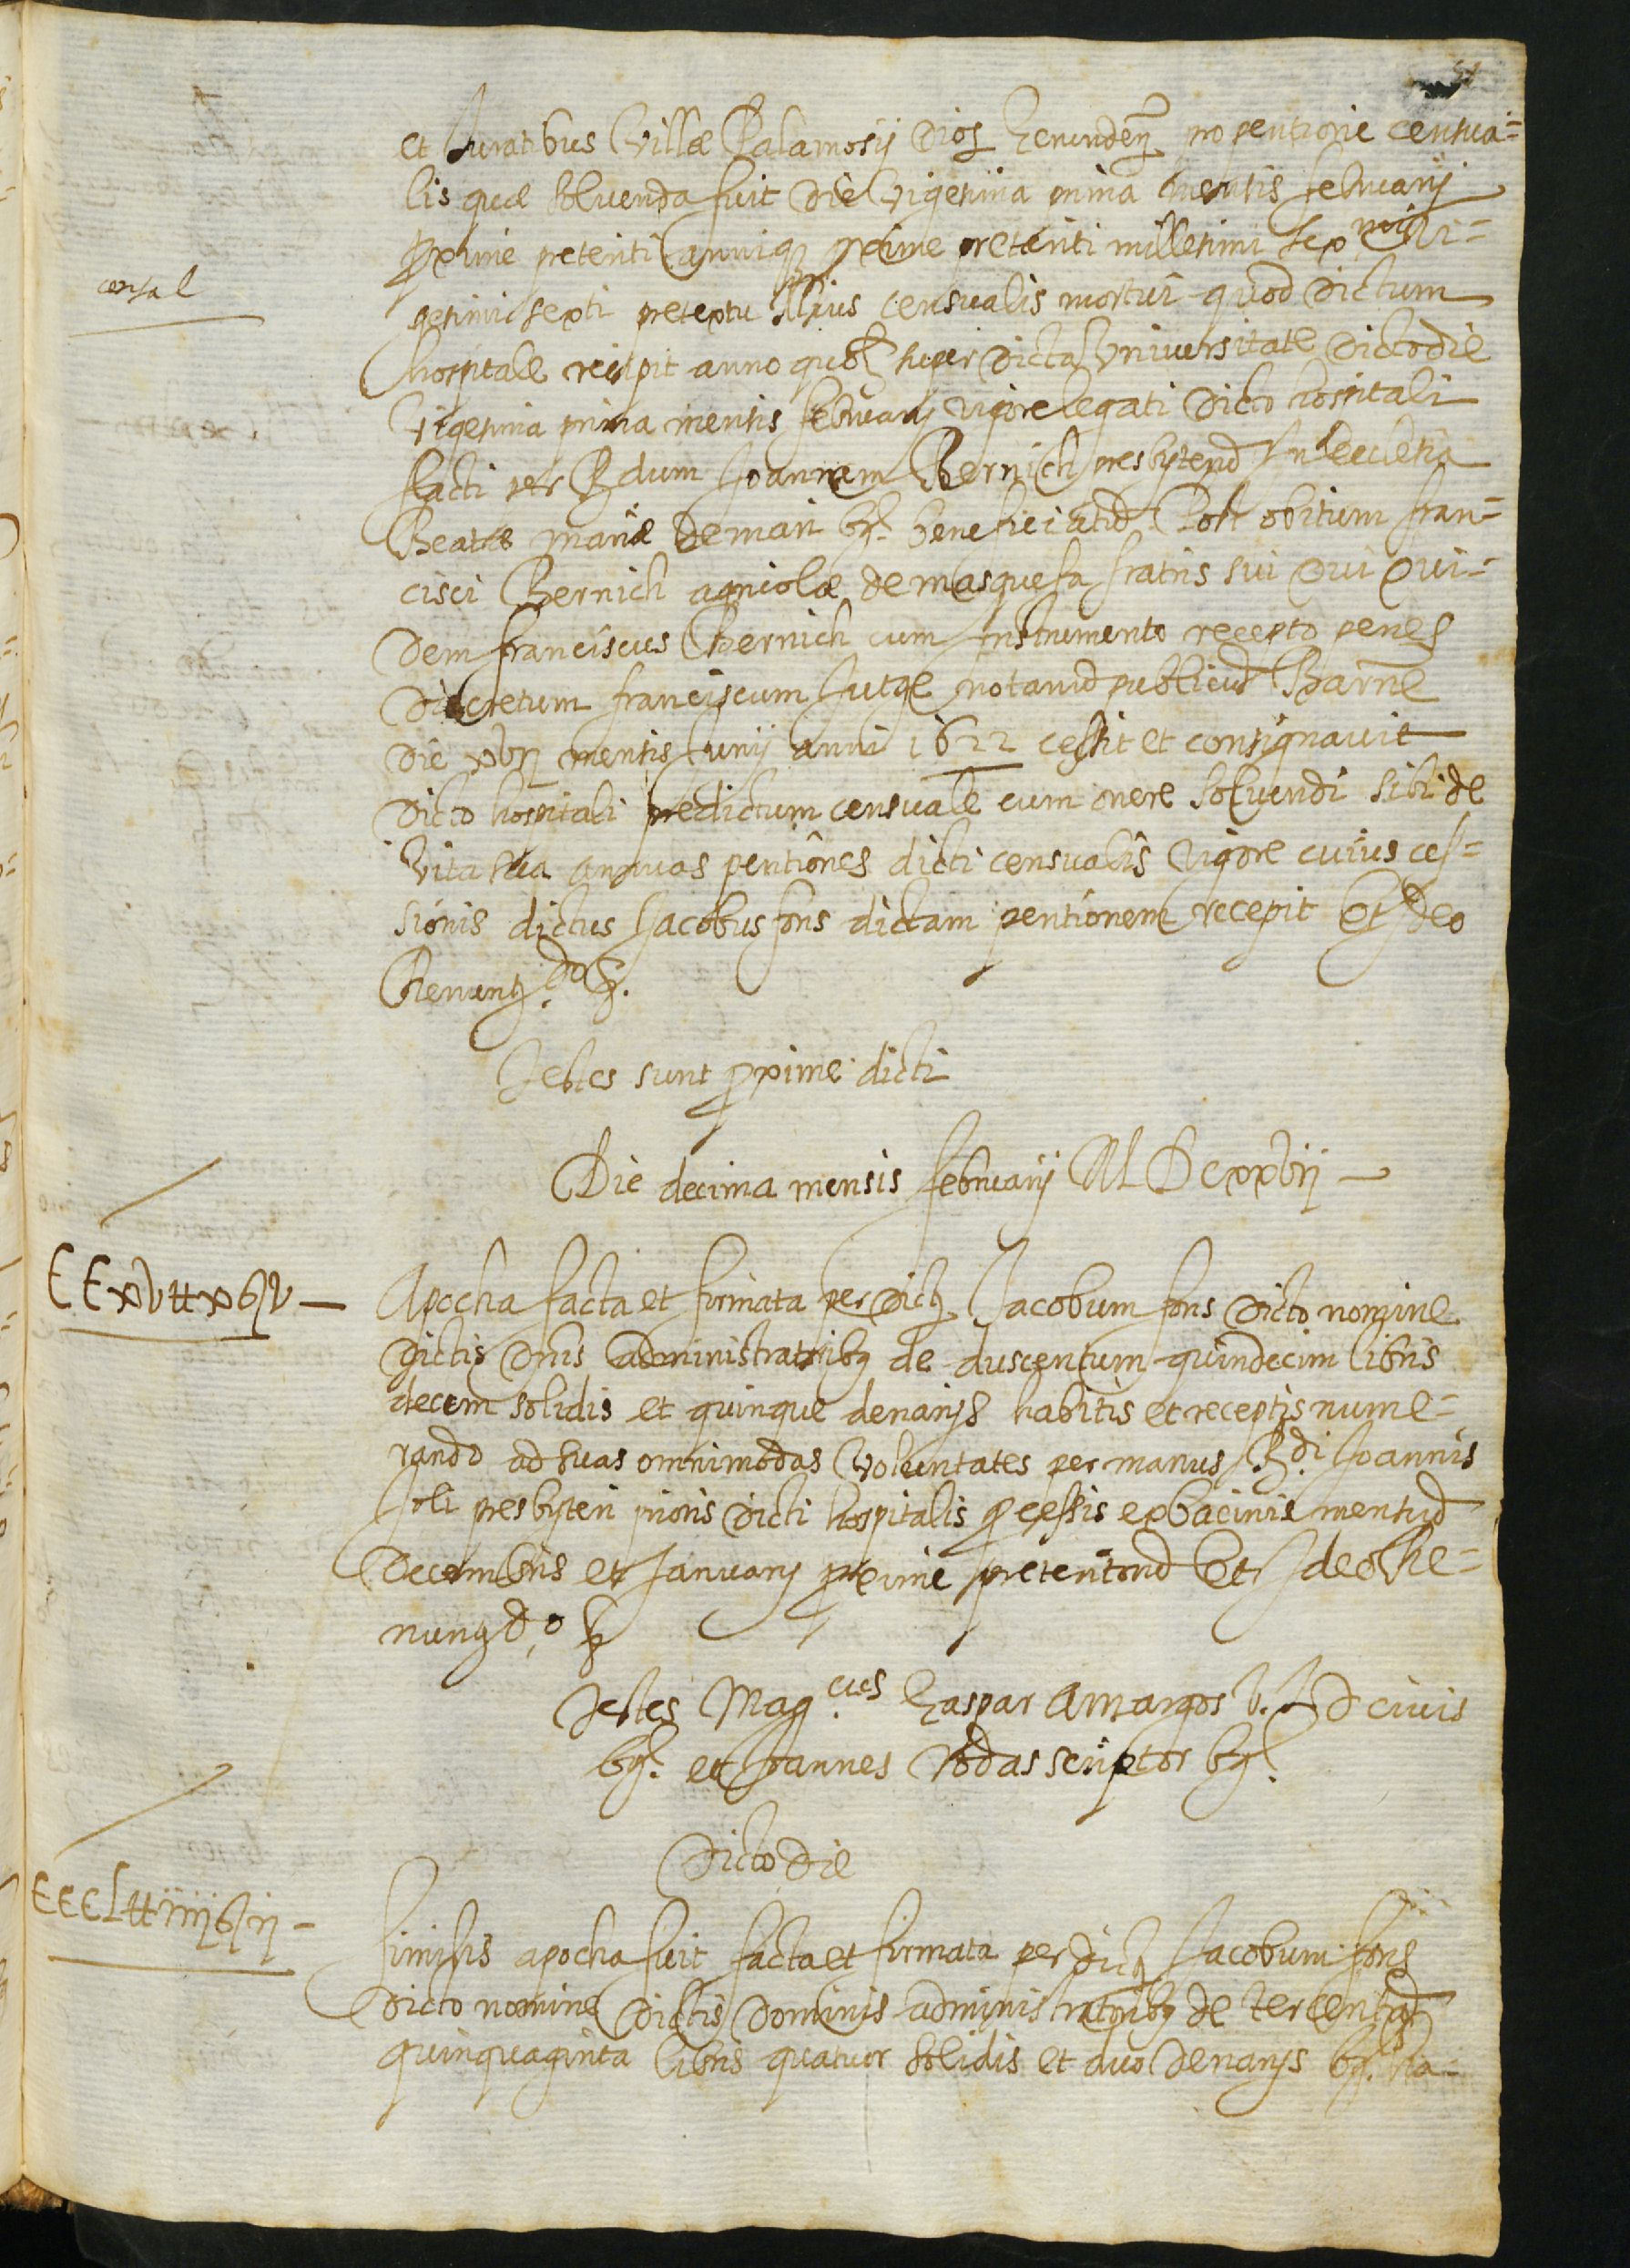 et Juratibus Villæ Palamosij Dios Gerunden̄ pro pentione censua=
lis quæ solvenda fuit die vigesima prima mensis februarij
proxime preteriti annique proxime preteriti millesimi sex.ᵐⁱ Vi=
gesimi sexti pretextu illius censualis mortui quod dictum
censal
hospitale recipit anno quol. super dicta Universitate dicto die
Vigesima prima mensis februarij vigore legati dicto hospitali
facti per Rdum Joannem Bernich presbyterū In Ecclesia
Beatæ mariæ de mari bar. beneficiatū Post obitum fran=
cisci Bernich agricolæ de masquefa fratris sui qui qui=
dem franciscus Bernich cum Instrumento recepto penes
discretum franciscum Jutge notariū publicū Barne
die xvij mensis Junij anni 1622 cessit et consignavit
dicto hospitali predictum censuale cum onere solvendi sibi de
vita sua annuas pentiones dicti censualis vigore cuius ces=
sionis dictus Jacobus fons dictam pentionem recepit Et Ideo
Renun.do &.
Testes sunt proxime dicti
Die decima mensis februarij MDCxxvij
CCxv ℔ x ß v
Apocha facta et firmata per dictū Jacobum fons dicto nomine
dictis Dnis administratoribz de duscentum quindecim libris
decem solidis et quinque denarijs habitis et receptis nume=
rando ad suas omnimodas Voluntates per manus R.di Joannis
Soli presbyteri prioris dicti hospitalis processis ex bacinis mensiū
decembris et Januarij proxime preteritorū Et Ideo Re=
nun do &
Testes Mag.cus Gaspar Amargos V. J. D civis
bar. et Joannes Rodas scriptor bar.
Dicto die
CCCL ℔ iiij ß ij
Similis apocha fuit facta et firmata per dictū Jacobum fons
dicto nomine dictis Dominis administratoribz de tercentū
quinquaginta libris quatuor solidis et duo denarijs bar. ha=